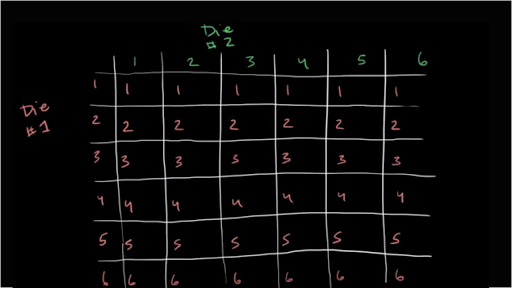 Die
#2
1 2 3 4 5 6
Die
#1
1 1 1 1 1 1 1
2 2 2 2 2 2 2
3 3 3 3 3 3 3
4 4 4 4 4 4 4
5 5 5 5 5 5 5
6 6 6 6 6 6 6